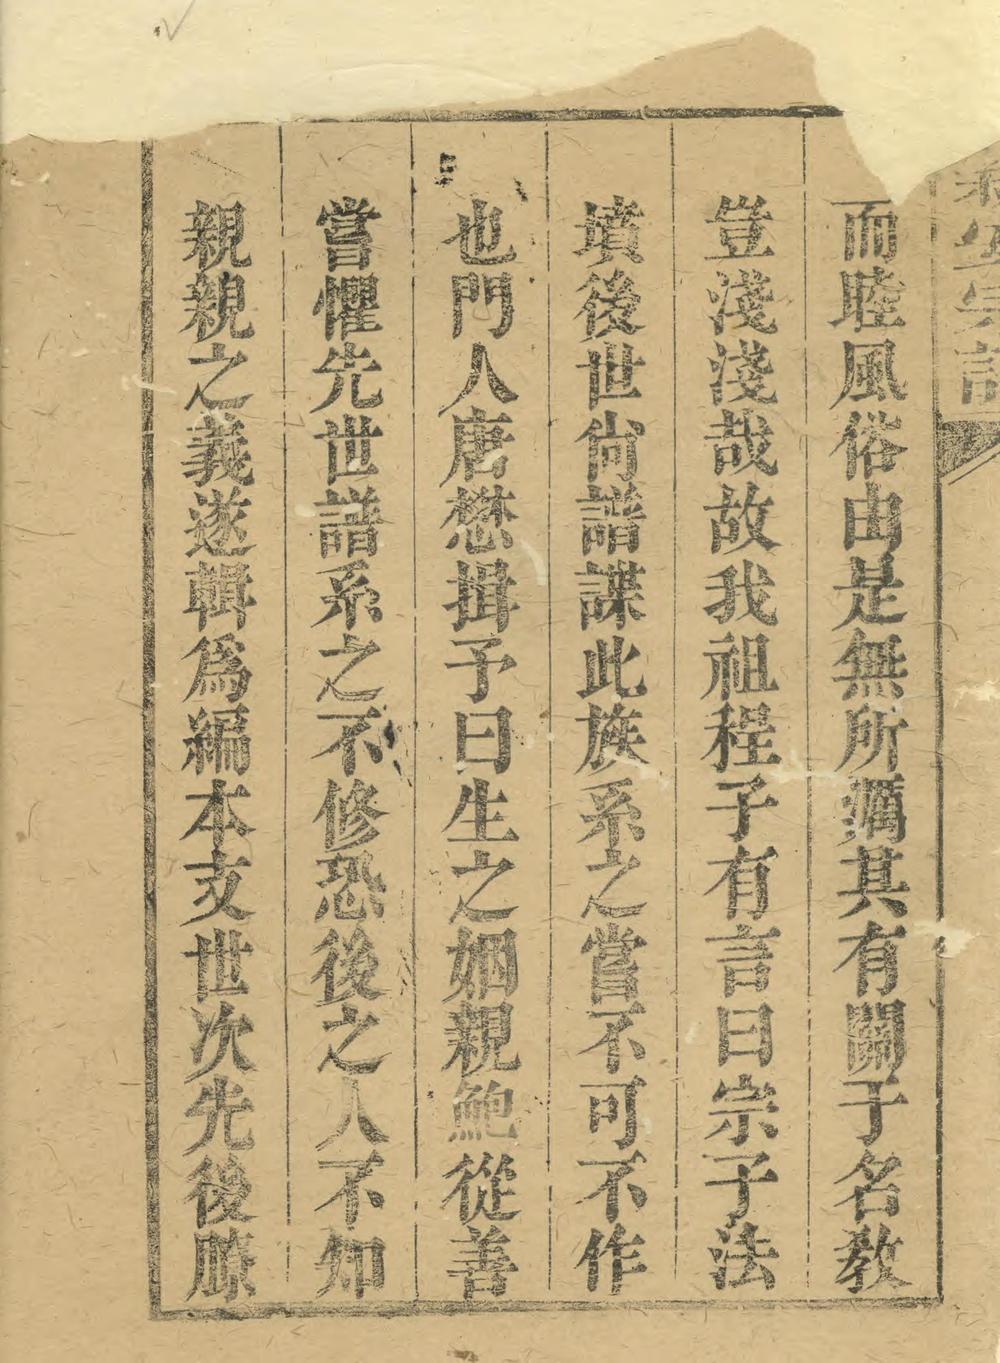 宗譜
而睦風俗由是無所其有關于名教
豈淺淺哉故我祖程子有言曰宗子法
墳後世尙譜諜此族系之嘗不可不作
也門人唐懋揖予曰生之姻親鮑從善
嘗懼先世譜系之不修恐後之人不知
親親之義遂輯爲編本支世次先後